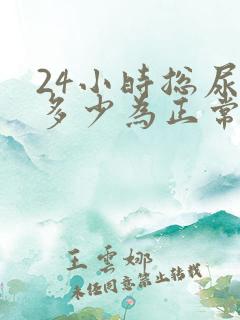 24小時總尿
多少為正常
王雲娜
未經同意禁止轉載